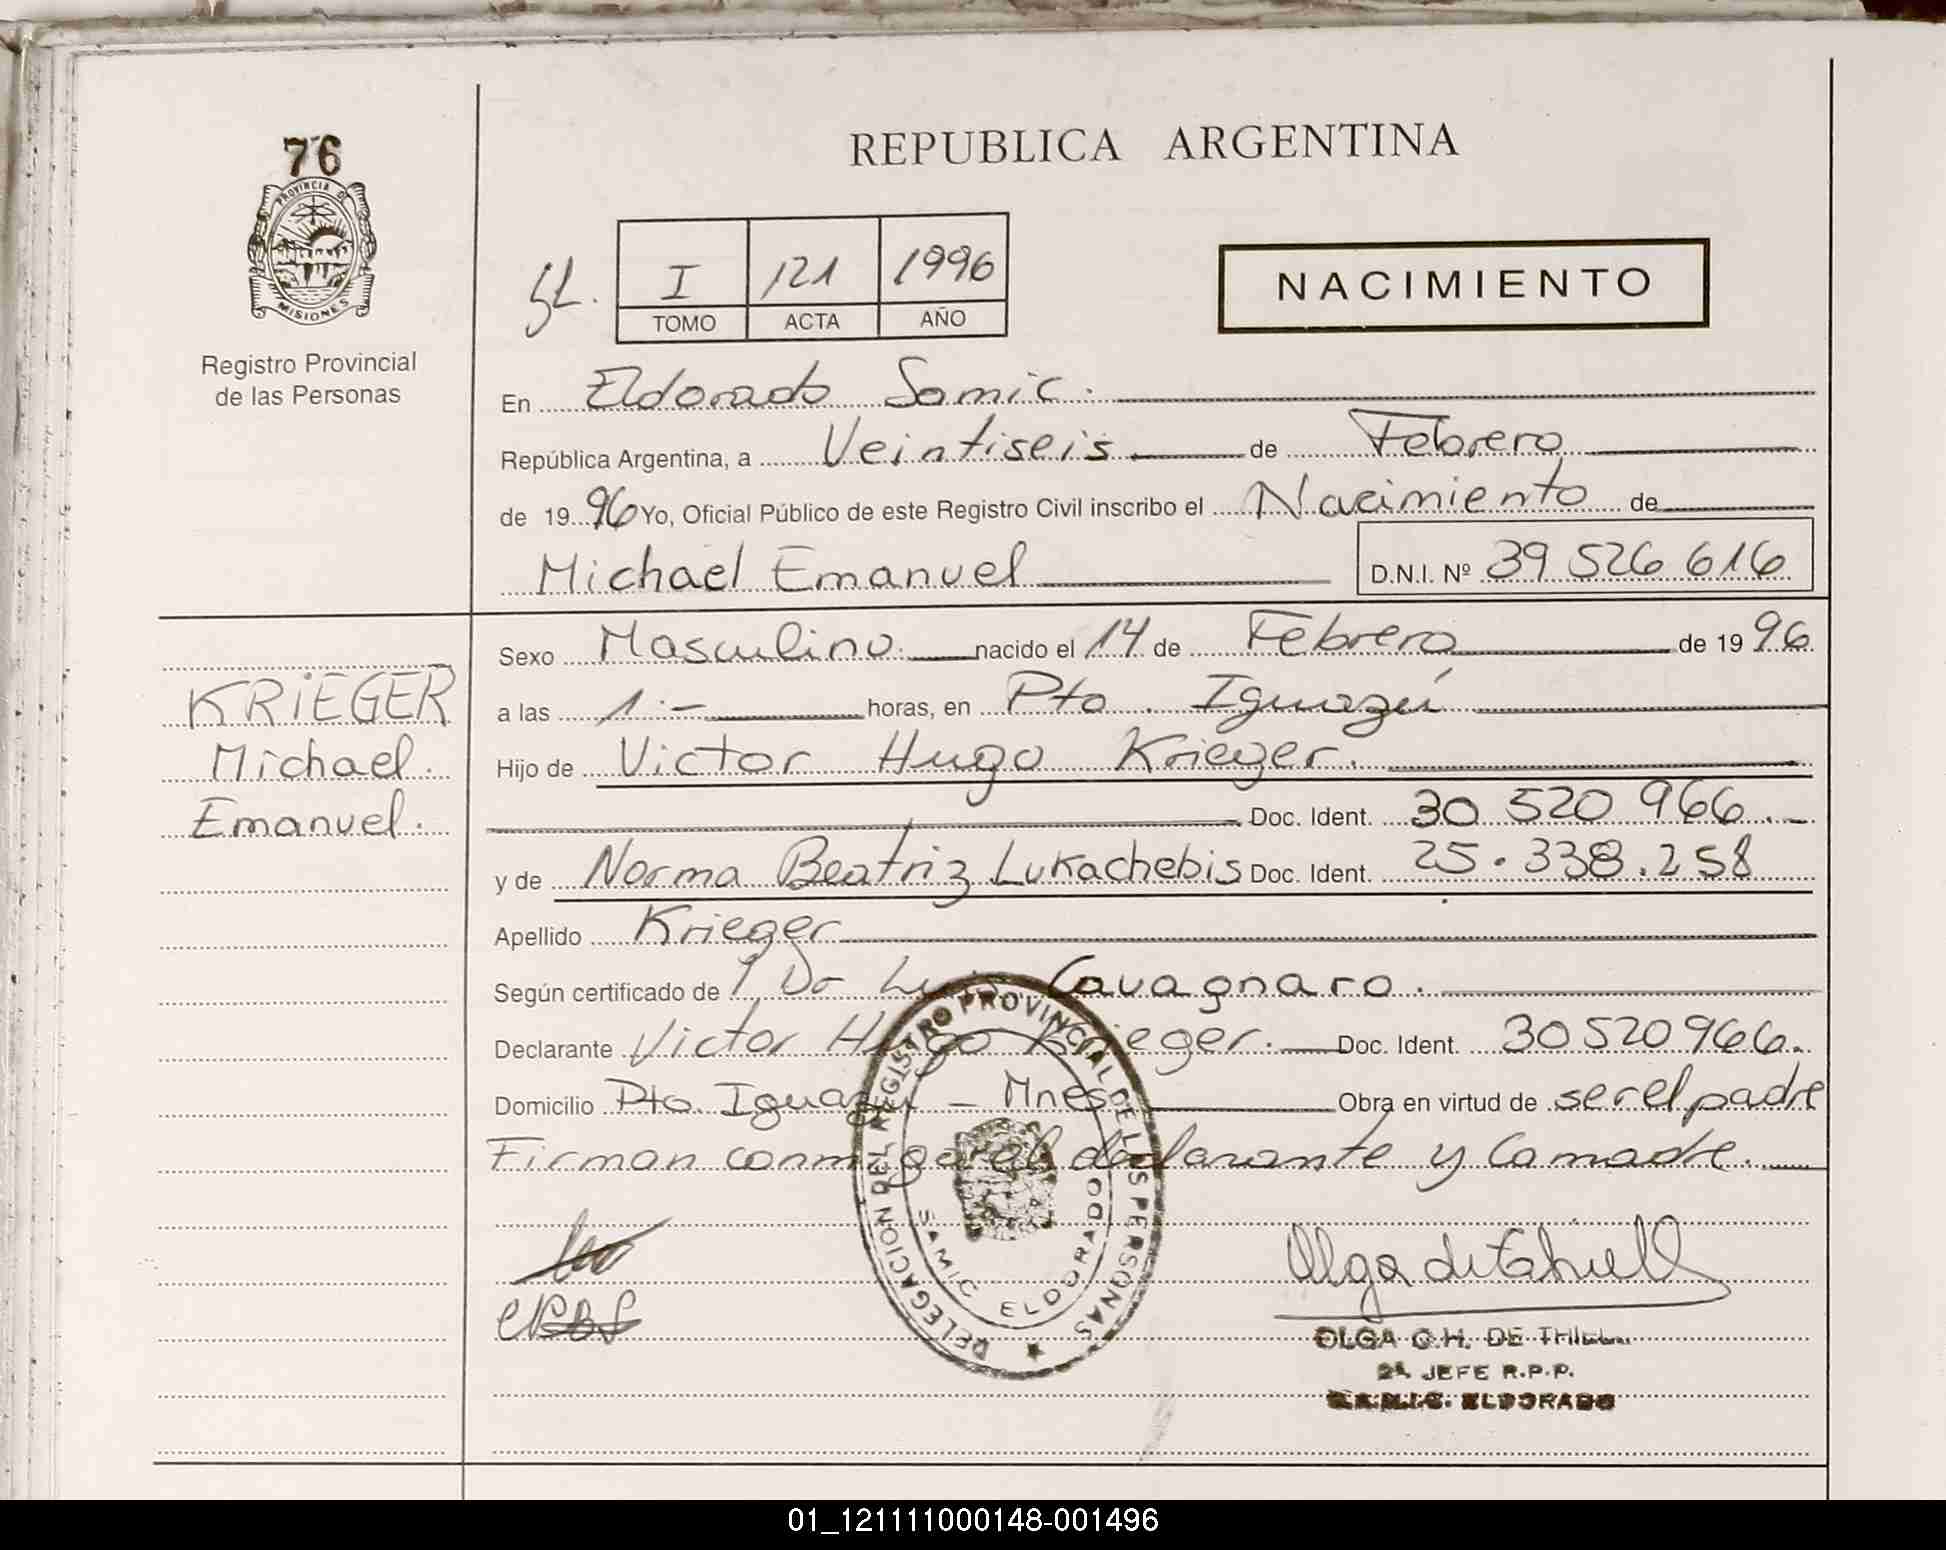 76
PROVINCIA DE
MISIONES
Registro Provincial
de las Personas
REPUBLICA ARGENTINA
I 121 1996
TOMO ACTA AÑO
NACIMIENTO
En Eldorado Samic.
República Argentina, a Veintiseis de Febrero
de 1996 Yo, Oficial Público de este Registro Civil inscribo el Nacimiento de
Michael Emanuel D.N.I. Nº 39 526 616
KRIEGER
Michael.
Emanuel.
Sexo Masculino. nacido el 14 de Febrero de 1996.
a las 1.- horas, en Pto. Iguazú
Hijo de Victor Hugo Krieger.
Doc. Ident. 30 520 966.-
y de Norma Beatriz Lukachebis Doc. Ident. 25.338.258
Apellido Krieger
Según certificado de Dr Luis Cavagnaro.
Declarante Victor Hugo Krieger. Doc. Ident. 30520966.
Domicilio Pto. Iguazú - Mnes Obra en virtud de ser el padre
Firman conmigo el declarante y la madre.
DELEGACION DEL REGISTRO PROVINCIAL DE LAS PERSONAS
SAMIC ELDORADO
OLGA G.H. DE THILL
2ª JEFE R.P.P.
S.A.M.I.C. ELDORADO
01_121111000148-001496